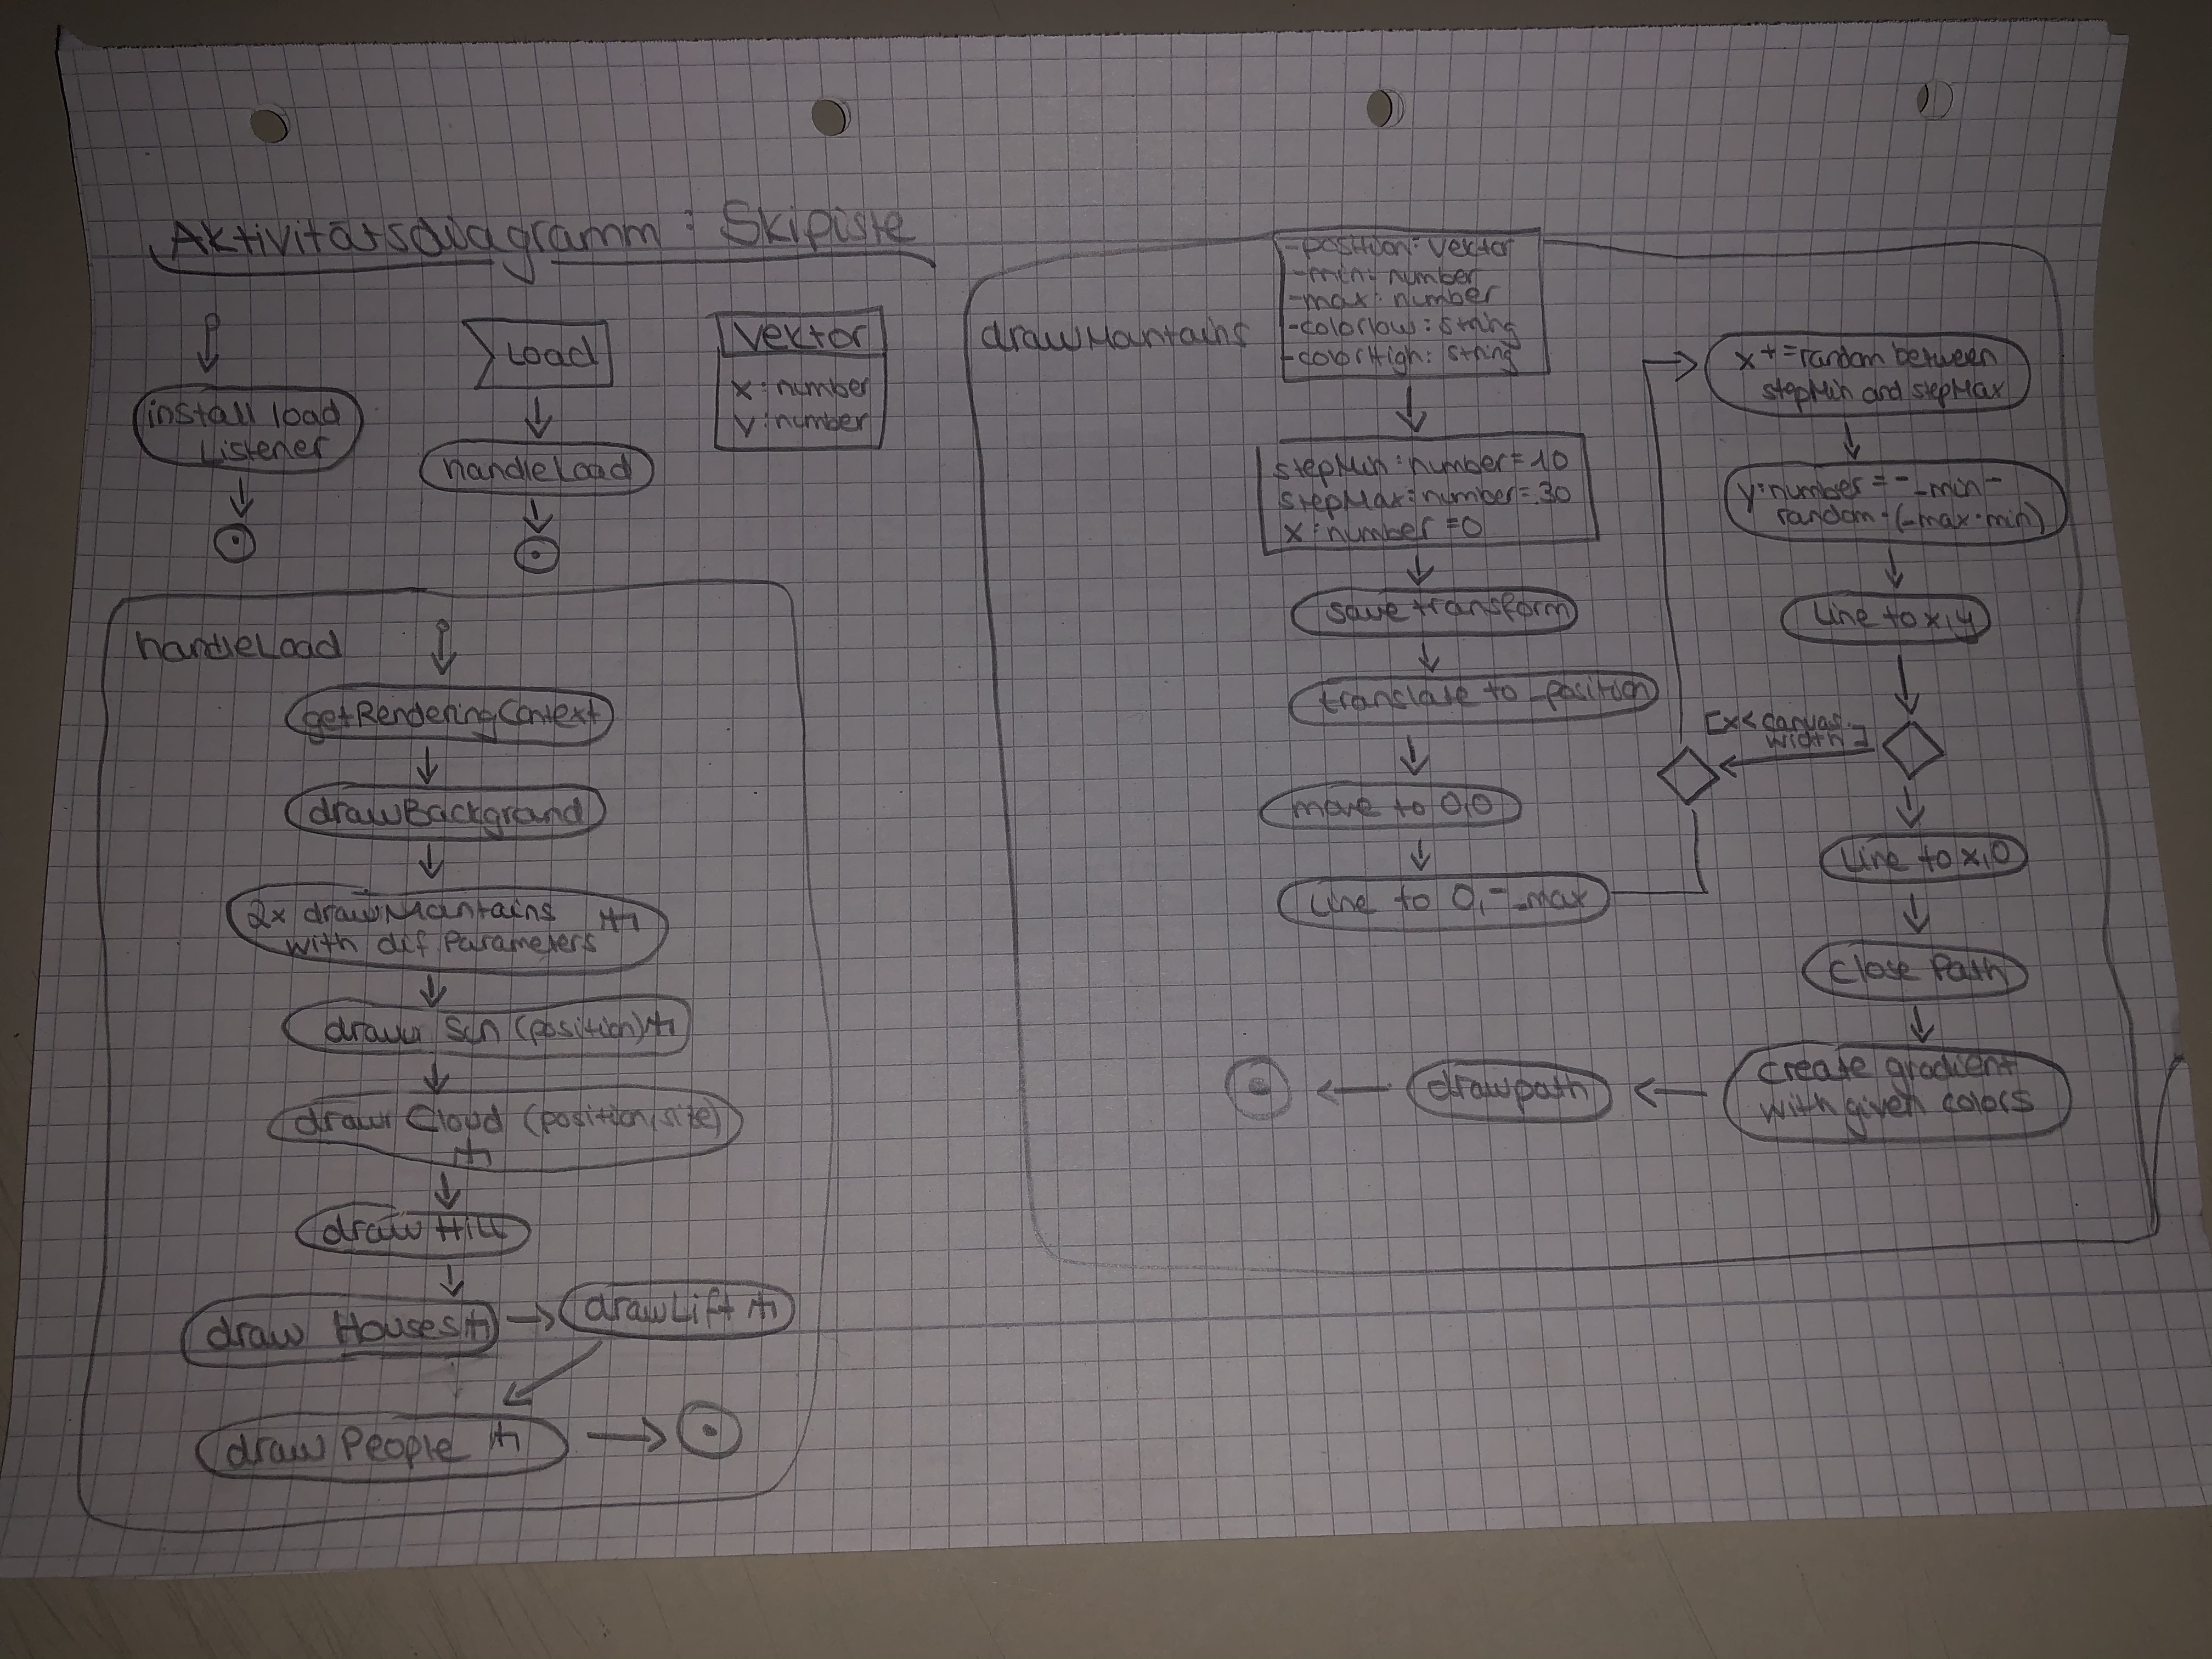 Aktivitätsdiagramm : Skipiste
install load
Listener
Load
handleLoad
Vektor
x : number
y : number
handleLoad
getRenderingContext
drawBackground
2x drawMountains
with dif Parameters
draw Sun (position)
draw Cloud (position, size)
draw Hill
draw Houses
drawLift
draw People
drawMountains
-position: Vektor
-min: number
-max: number
-colorlow: string
-colorHigh: string
stepMin: number = 10
stepMax: number = 30
x: number = 0
Save transform
translate to _position
move to 0,0
Line to 0, -_max
x += random between
stepMin and stepMax
y: number = -_min -
random · (_max - min)
Line to x, y
[x < canvas.
width]
Line to x,0
Close Path
create gradient
with given colors
draw path